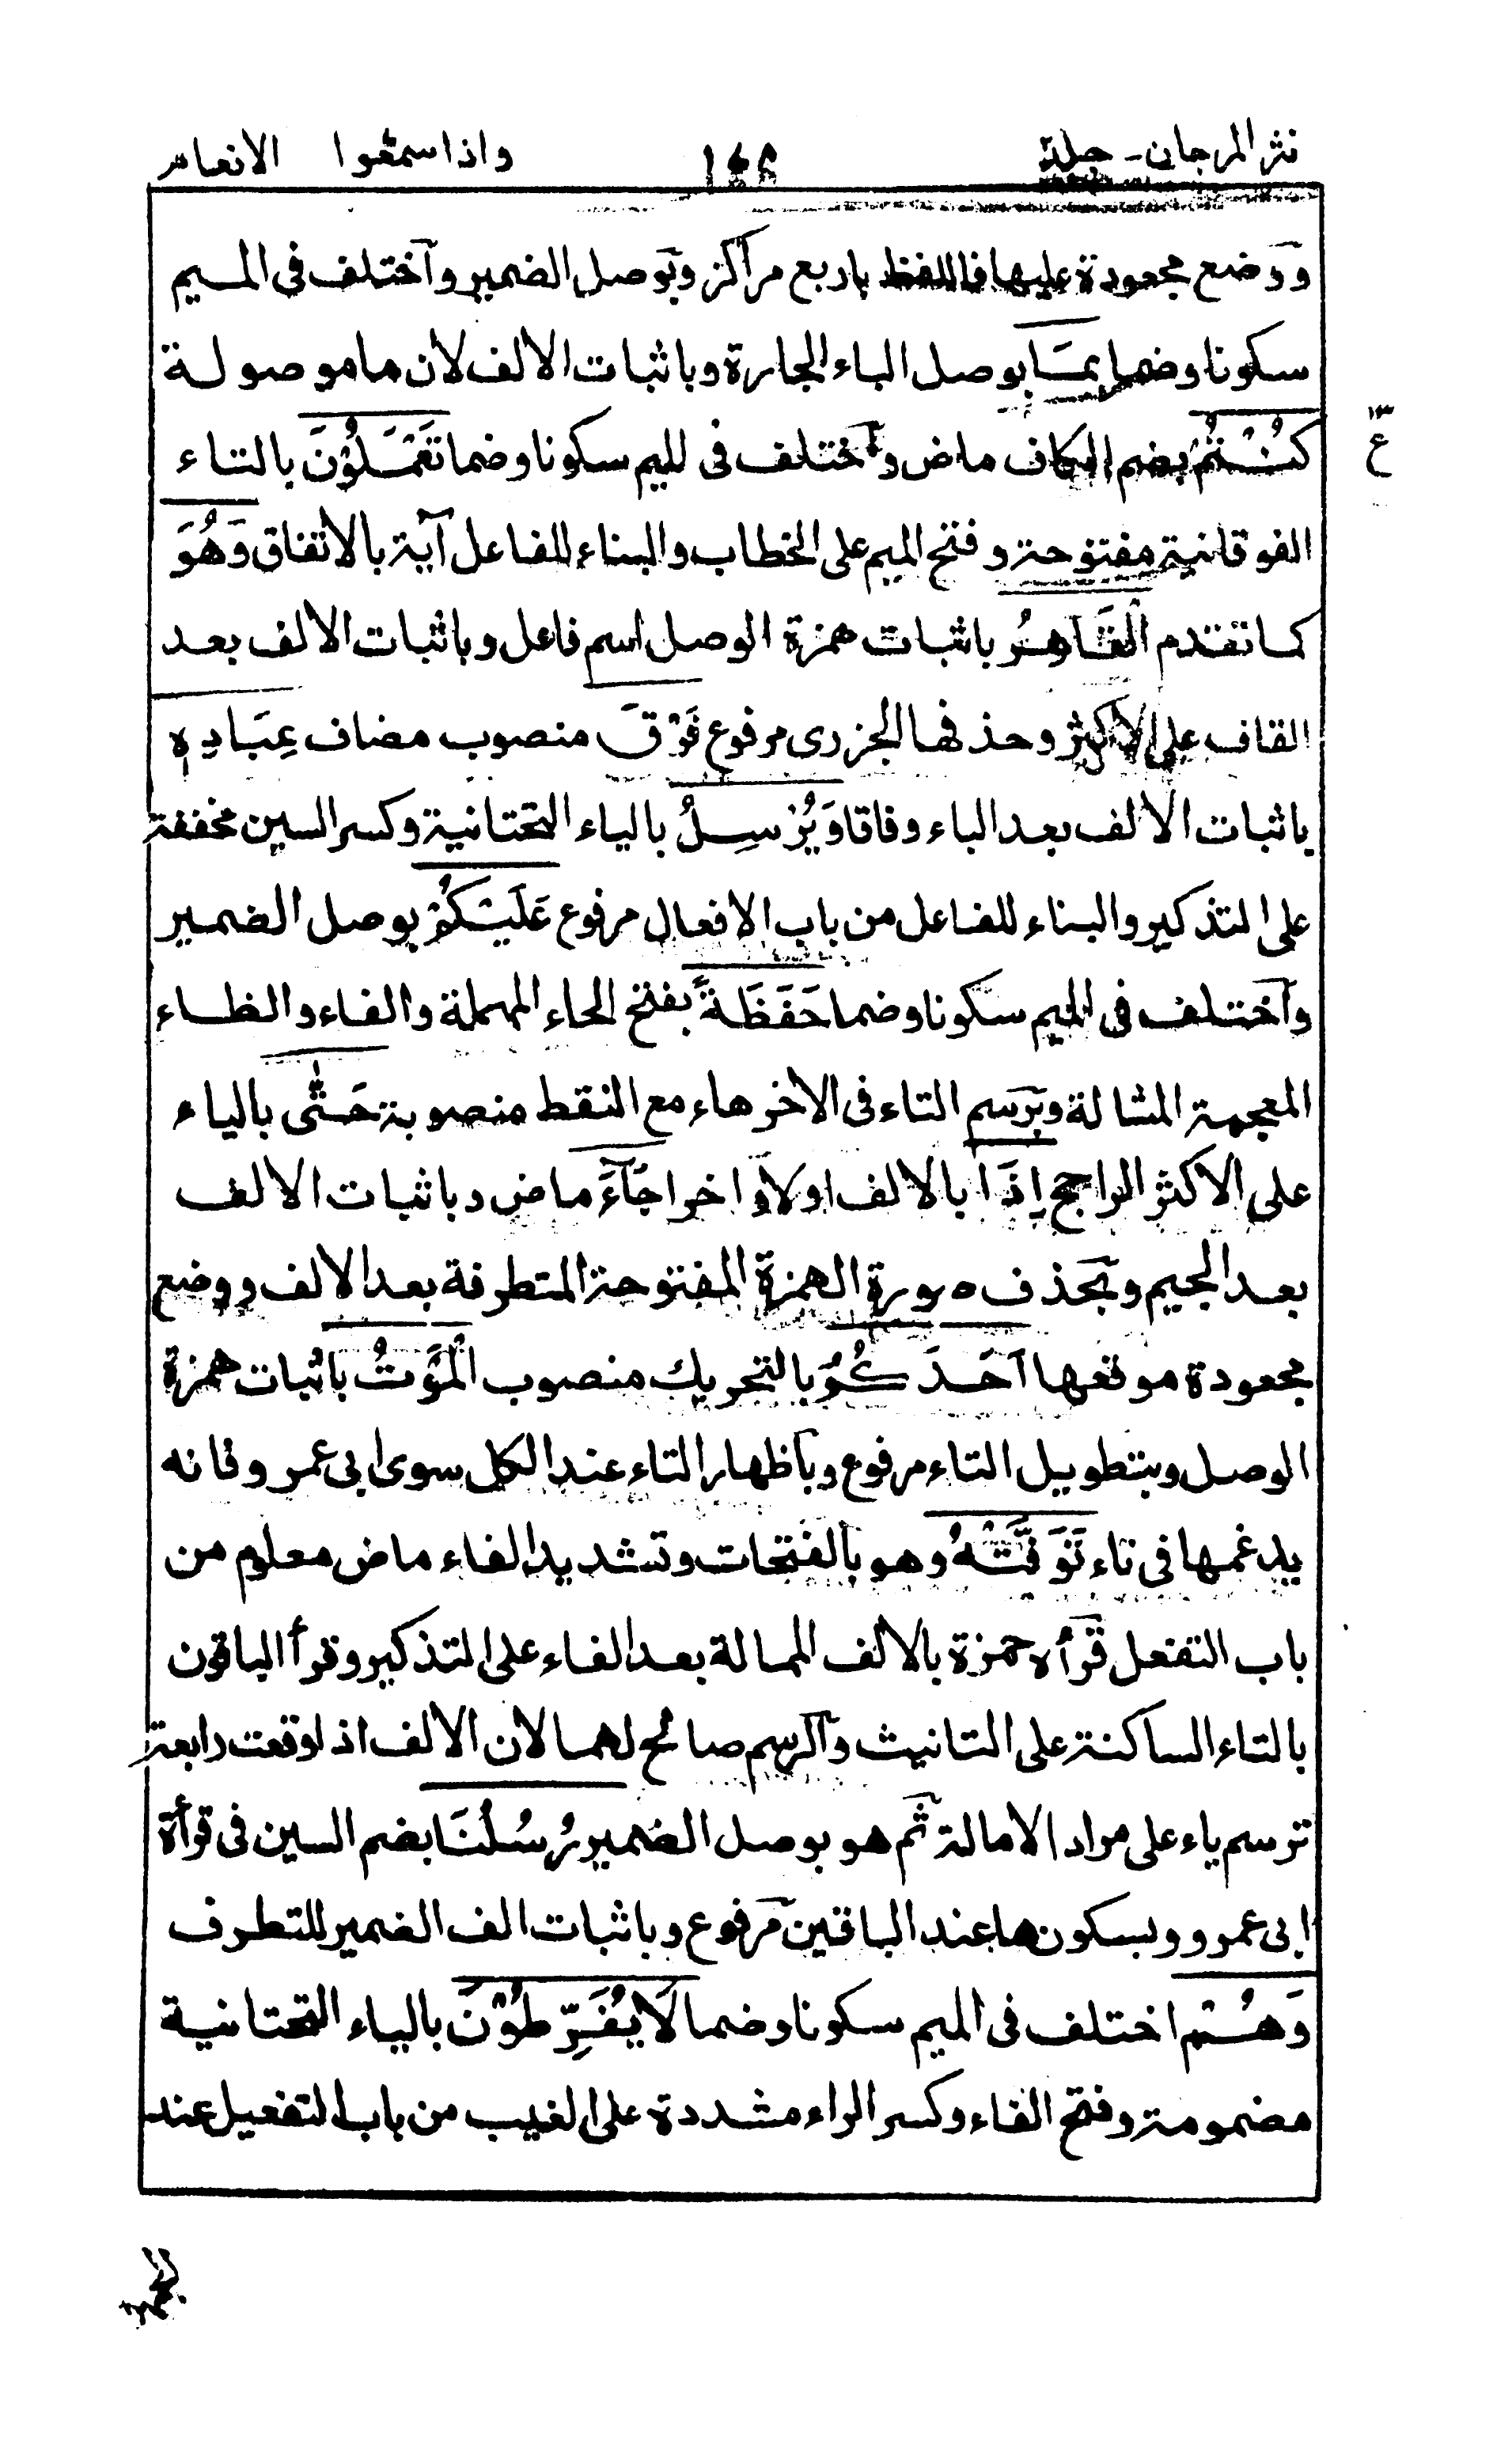 نثر المرجان - جلد
واذا سمعوا الانعام
ووضع مجعودة عليها فاللفظ باربع مراكز وبوصل الضمير واختلف فى الميم
سكونا وضما بِمَا بوصل الباء الجارة وباثبات الالف لان ما موصولة
كُنْتُمْ بضم الكاف ماض واختلف فى الميم سكونا وضما تَعْمَلُوْنَ بالتاء
الفوقانية مفتوحة وفتح الميم على الخطاب والبناء للفاعل آية بالاتفاق وَهُوَ
كما تقدم الْقَاهِرُ باثبات همزة الوصل اسم فاعل وباثبات الالف بعد
القاف على الاكثر وحذفها الجزرى مرفوع فَوْقَ منصوب مضاف عِبَادِهٖ
باثبات الالف بعد الباء وفاقا وَيُرْسِلُ بالياء التحتانية وكسر السين مخففة
على التذكير والبناء للفاعل من باب الافعال مرفوع عَلَيْكُمْ بوصل الضمير
واختلف فى الميم سكونا وضما حَفَظَةً بفتح الحاء المهملة والفاء والظاء
المعجمة المشالة وبرسم التاء فى الاخر هاء مع النقط منصوبة حَتّٰى بالياء
على الاكثر الراجح اِذَا بالالف اولا واخرا جَآءَ ماض وباثبات الالف
بعد الجيم وبحذف صورة الهمزة المفتوحة المتطرفة بعد الالف ووضع
مجعودة موقعها اَحَدَكُمُ بالتحريك منصوب الْمَوْتُ باثبات همزة
الوصل وبتطويل التاء مرفوع وباظهار التاء عند الكل سوى ابى عمرو فانه
يدغمها فى تاء تَوَفَّتْهُ وهو بالفتحات وتشديد الفاء ماض معلوم من
باب التفعل قرأه حمزة بالالف الممالة بعد الفاء على التذكير وقرأ الباقون
بالتاء الساكنة على التانيث والرسم صالح لهما لان الالف اذا وقعت رابعة
ترسم ياء على مراد الامالة ثم هو بوصل الضمير رُسُلُنَا بضم السين فى قرأة
ابى عمرو وبسكونها عند الباقين مرفوع وباثبات الف الضمير للتطرف
وَهُمْ اختلف فى الميم سكونا وضما لَا يُفَرِّطُوْنَ بالياء التحتانية
مضمومة وفتح الفاء وكسر الراء مشددة على الغيب من باب التفعيل عند